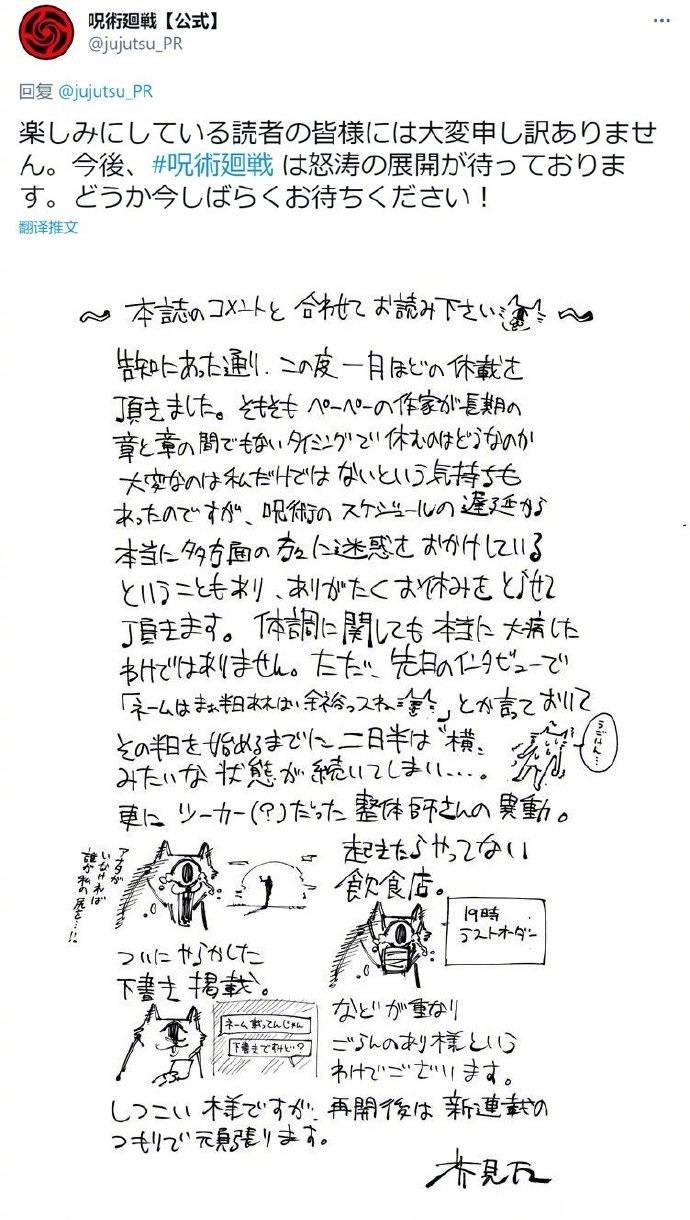 呪術廻戦【公式】
@jujutsu_PR
回复 @jujutsu_PR
楽しみにしている読者の皆様には大変申し訳ありませ
ん。今後、#呪術廻戦 は怒涛の展開が待っておりま
す。どうか今しばらくお待ちください！
翻译推文
〜 本誌のコメントと 合わせて お読み下さい 〜
告知にあった通り、この度 一月ほどの休載を
頂きました。そもそも ペーペーの作家が長期の
章と章の間でもないタイミングで休むのはどうなのか
大変なのは私だけでは ないという気持ちも
あったのですが、呪術の スケジュールの 遅延から
本当に多方面の方々に迷惑を おかけしている
ということもあり、ありがたくお休みを とらせて
頂きます。 体調に関しても 本当に 大病した
わけではありません。ただ、先日のインタビューで
「ネームはまぁ半日あれば余裕っスね」とか言って おいて
その半日を始めるまでに 二日半は〝横〟
みたいな 状態が 続いてしまい‥‥。
うごけん…
更に ツーカー(?)だった 整体師さんの 異動。
アナタが
いなければ
誰が私の尻を…!!
起きたらやってない
飲食店。
19時
ラストオーダー
ついに やらかした
下書き 掲載。
ネーム載ってんじゃん
下書きですけど?
などが重なり
ごらんのあり様という
わけでございます。
しつこい 様ですが、再開後は 新連載の
つもりで 頑張ります。
芥見下々